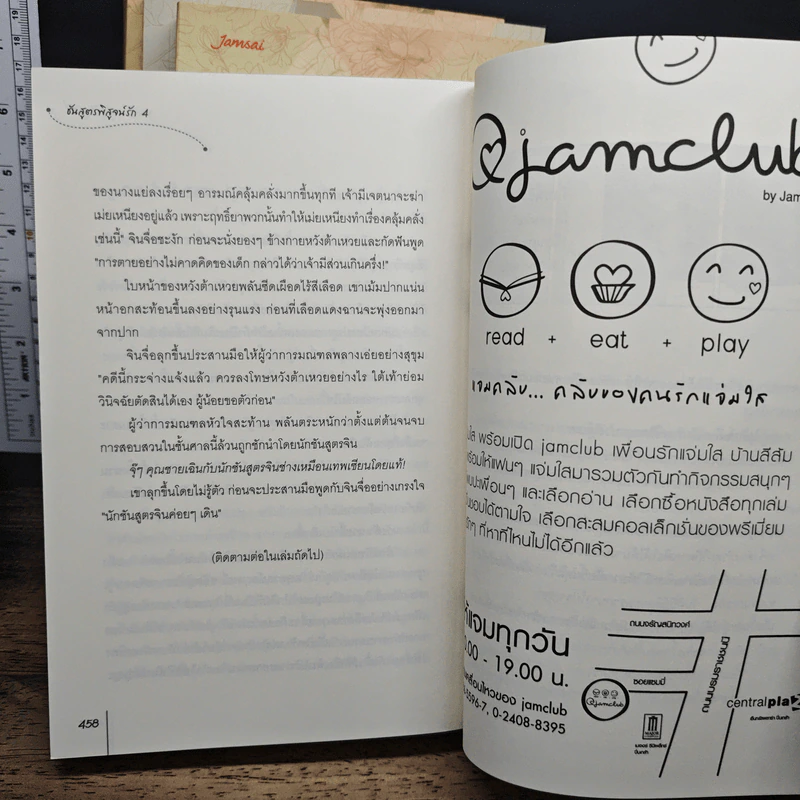 Jamsai
ชันสูตรพิสูจน์รัก 4
ของนางแย่ลงเรื่อยๆ อารมณ์คลุ้มคลั่งมากขึ้นทุกที เจ้ามีเจตนาจะฆ่า
เม่ยเหนียงอยู่แล้ว เพราะฤทธิ์ยาพวกนั้นทำให้เม่ยเหนียงทำเรื่องคลุ้มคลั่ง
เช่นนี้" จินจื่อชะงัก ก่อนจะนั่งยองๆ ข้างกายหวังต้าเหวยและกัดฟันพูด
"การตายอย่างไม่คาดคิดของเด็ก กล่าวได้ว่าเจ้ามีส่วนเกินครึ่ง!"
ใบหน้าของหวังต้าเหวยพลันซีดเผือดไร้สีเลือด เขาเม้มปากแน่น
หน้าอกสะท้อนขึ้นลงอย่างรุนแรง ก่อนที่เลือดแดงฉานจะพุ่งออกมา
จากปาก
จินจื่อลุกขึ้นประสานมือให้ผู้ว่าการมณฑลพลางเอ่ยอย่างสุขุม
"คดีนี้กระจ่างแจ้งแล้ว ควรลงโทษหวังต้าเหวยอย่างไร ใต้เท้าย่อม
วินิจฉัยตัดสินได้เอง ผู้น้อยขอตัวก่อน"
ผู้ว่าการมณฑลหัวใจสะท้าน พลันตระหนักว่าตั้งแต่ต้นจนจบ
การสอบสวนในชั้นศาลนี้ล้วนถูกชักนำโดยนักชันสูตรจิน
จุ๊ๆ คุณชายเฉินกับนักชันสูตรจินช่างเหมือนเทพเซียนโดยแท้!
เขาลุกขึ้นโดยไม่รู้ตัว ก่อนจะประสานมือพูดกับจินจื่ออย่างเกรงใจ
"นักชันสูตรจินค่อยๆ เดิน"
(ติดตามต่อในเล่มถัดไป)
458
@jamclub
by Jam
read + eat + play
แจมคลับ... คลับของคนรักแจ่มใส
ใส พร้อมเปิด jamclub เพื่อนรักแจ่มใส บ้านสีส้ม
พร้อมให้แฟนๆ แจ่มใสมารวมตัวกันทำกิจกรรมสนุกๆ
พบปะเพื่อนๆ และเลือกอ่าน เลือกซื้อหนังสือทุกเล่ม
ชอบได้ตามใจ เลือกสะสมคอลเล็กชั่นของพรีเมี่ยม
รักๆ ที่หาที่ไหนไม่ได้อีกแล้ว
แจมทุกวัน
.00 - 19.00 น.
เคลื่อนไหวของ jamclub
-6596-7, 0-2408-8395
ถนนจรัญสนิทวงศ์
ถนนบรมราชชนนี
ซอยแซมมี่
@jamclub
MAJOR
เมเจอร์ ซีนีเพล็กซ์
ปิ่นเกล้า
centralplaz
เซ็นทรัลพลาซา ปิ่นเกล้า